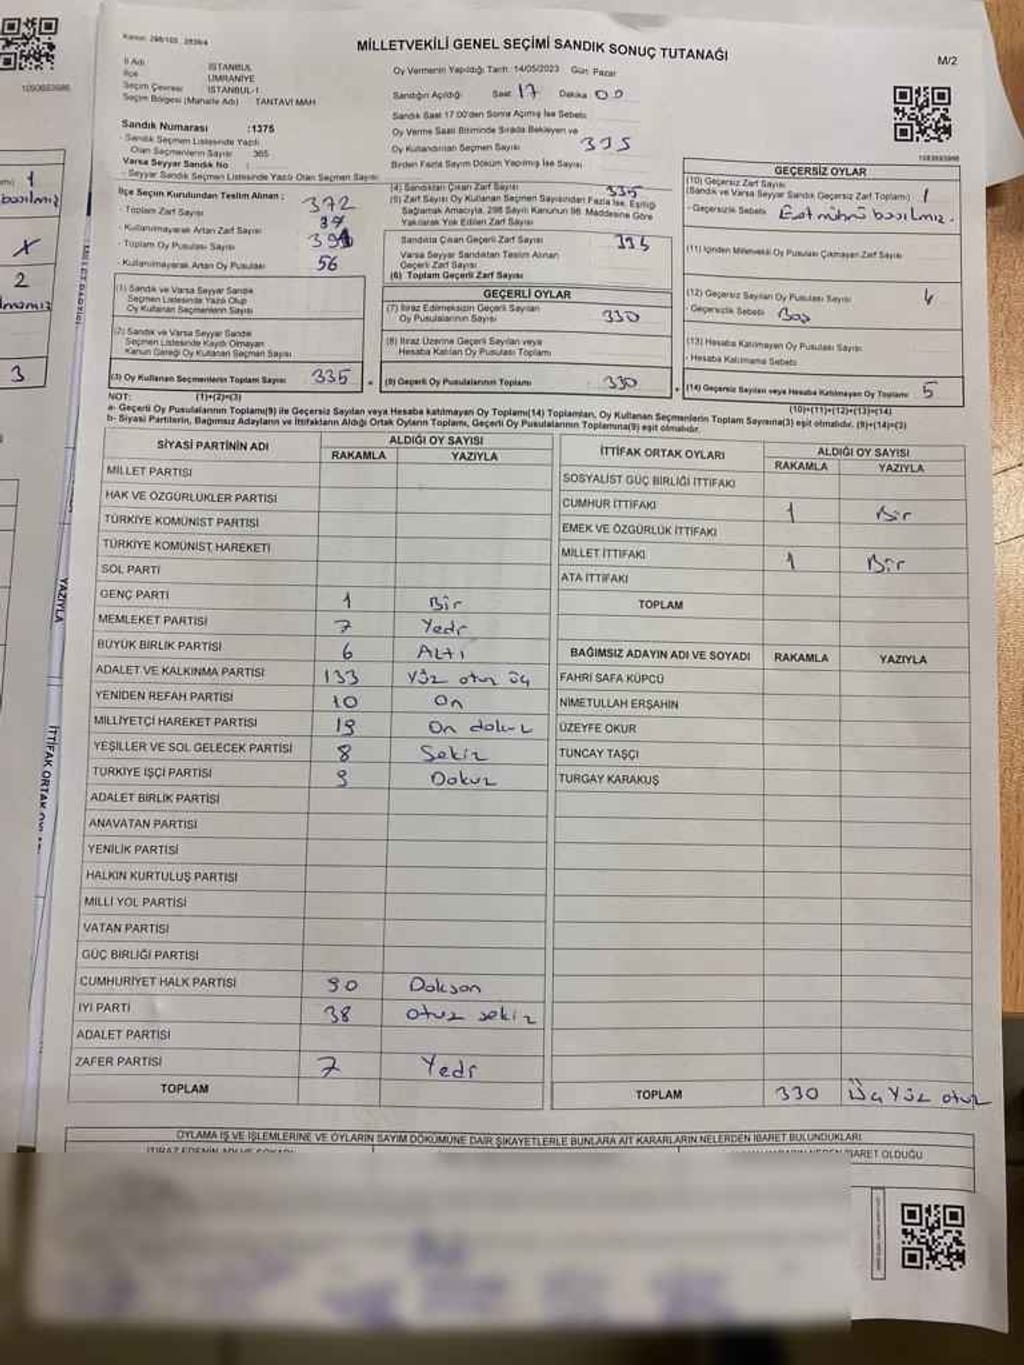 Kanun: 298/105, 2839/4
MİLLETVEKİLİ GENEL SEÇİMİ SANDIK SONUÇ TUTANAĞI
M/2
İl Adı İSTANBUL
İlçe ÜMRANİYE
Seçim Çevresi İSTANBUL-1
Seçim Bölgesi (Mahalle Adı) TANTAVİ MAH.
Oy Vermenin Yapıldığı Tarih: 14/05/2023 Gün: Pazar
Sandığın Açıldığı Saat 17 Dakika 00
Sandık Saat 17:00'den Sonra Açılmış İse Sebebi
Oy Verme Saati Bitiminde Sırada Bekleyen ve
Oy Kullandırılan Seçmen Sayısı 335
Birden Fazla Sayım Döküm Yapılmış İse Sayısı
Sandık Numarası :1375
- Sandık Seçmen Listesinde Yazılı
Olan Seçmenlerin Sayısı 365
Varsa Seyyar Sandık No :
- Seyyar Sandık Seçmen Listesinde Yazılı Olan Seçmen Sayısı
İlçe Seçim Kurulundan Teslim Alınan :
- Toplam Zarf Sayısı 372
- Kullanılmayarak Artan Zarf Sayısı 37
- Toplam Oy Pusulası Sayısı
- Kullanılmayarak Artan Oy Pusulası 56
(1) Sandık ve Varsa Seyyar Sandık
Seçmen Listesinde Yazılı Olup
Oy Kullanan Seçmenlerin Sayısı
(2) Sandık ve Varsa Seyyar Sandık
Seçmen Listesinde Kayıtlı Olmayan
Kanun Gereği Oy Kullanan Seçmen Sayısı
(3) Oy Kullanan Seçmenlerin Toplam Sayısı 335
(4) Sandıktan Çıkan Zarf Sayısı 335
(5) Zarf Sayısı Oy Kullanan Seçmen Sayısından Fazla İse, Eşitliği
Sağlamak Amacıyla, 298 Sayılı Kanunun 98. Maddesine Göre
Yakılarak Yok Edilen Zarf Sayısı
Sandıkta Çıkan Geçerli Zarf Sayısı 334
Varsa Seyyar Sandıktan Teslim Alınan
Geçerli Zarf Sayısı
(6) Toplam Geçerli Zarf Sayısı
GEÇERLİ OYLAR
(7) İtiraz Edilmeksizin Geçerli Sayılan
Oy Pusulalarının Sayısı 330
(8) İtiraz Üzerine Geçerli Sayılan veya
Hesaba Katılan Oy Pusulası Toplamı
(9) Geçerli Oy Pusulalarının Toplamı 330
1083693986
GEÇERSİZ OYLAR
(10) Geçersiz Zarf Sayısı
(Sandık ve Varsa Seyyar Sandık Geçersiz Zarf Toplamı) 1
- Geçersizlik Sebebi Evet mührü basılmış.
(11) İçinden Milletvekili Oy Pusulası Çıkmayan Zarf Sayısı
(12) Geçersiz Sayılan Oy Pusulası Sayısı 4
- Geçersizlik Sebebi Boş
(13) Hesaba Katılmayan Oy Pusulası Sayısı
- Hesaba Katılmama Sebebi
(14) Geçersiz Sayılan veya Hesaba Katılmayan Oy Toplamı 5
NOT: (1)+(2)=(3) (10)+(11)+(12)+(13)=(14)
a- Geçerli Oy Pusulalarının Toplamı(9) ile Geçersiz Sayılan veya Hesaba katılmayan Oy Toplamı(14) Toplamları, Oy Kullanan Seçmenlerin Toplam Sayısına(3) eşit olmalıdır. (9)+(14)=(3)
b- Siyasi Partilerin, Bağımsız Adayların ve İttifakların Aldığı Ortak Oyların Toplamı, Geçerli Oy Pusulalarının Toplamına(9) eşit olmalıdır.
SİYASİ PARTİNİN ADI ALDIĞI OY SAYISI
RAKAMLA YAZIYLA
MİLLET PARTİSİ
HAK VE ÖZGÜRLÜKLER PARTİSİ
TÜRKİYE KOMÜNİST PARTİSİ
TÜRKİYE KOMÜNİST HAREKETİ
SOL PARTİ
GENÇ PARTİ 1 Bir
MEMLEKET PARTİSİ 7 Yedi
BÜYÜK BİRLİK PARTİSİ 6 ALTI
ADALET VE KALKINMA PARTİSİ 133 Yüz otuz üç
YENİDEN REFAH PARTİSİ 10 On
MİLLİYETÇİ HAREKET PARTİSİ 19 On dokuz
YEŞİLLER VE SOL GELECEK PARTİSİ 8 Sekiz
TÜRKİYE İŞÇİ PARTİSİ 9 Dokuz
ADALET BİRLİK PARTİSİ
ANAVATAN PARTİSİ
YENİLİK PARTİSİ
HALKIN KURTULUŞ PARTİSİ
MİLLİ YOL PARTİSİ
VATAN PARTİSİ
GÜÇ BİRLİĞİ PARTİSİ
CUMHURİYET HALK PARTİSİ 90 Doksan
İYİ PARTİ 38 Otuz sekiz
ADALET PARTİSİ
ZAFER PARTİSİ 7 Yedi
TOPLAM
İTTİFAK ORTAK OYLARI ALDIĞI OY SAYISI
RAKAMLA YAZIYLA
SOSYALİST GÜÇ BİRLİĞİ İTTİFAKI
CUMHUR İTTİFAKI 1 Bir
EMEK VE ÖZGÜRLÜK İTTİFAKI
MİLLET İTTİFAKI 1 Bir
ATA İTTİFAKI
TOPLAM
BAĞIMSIZ ADAYIN ADI VE SOYADI RAKAMLA YAZIYLA
FAHRİ SAFA KÜPCÜ
NİMETULLAH ERŞAHİN
ÜZEYFE OKUR
TUNCAY TAŞÇI
TURGAY KARAKUŞ
TOPLAM 330 Üç Yüz otuz
OYLAMA İŞ VE İŞLEMLERİNE VE OYLARIN SAYIM DÖKÜMÜNE DAİR ŞİKAYETLERLE BUNLARA AİT KARARLARIN NELERDEN İBARET BULUNDUKLARI
İBARET OLDUĞU
1
basılmış
X
2
3
YAZIYLA
İTTİFAK ORTAK